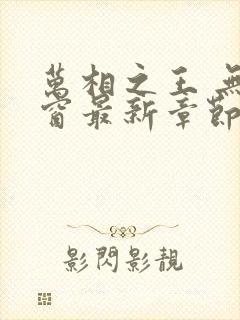 萬相之王 無
窗最新章節
影閃影靚